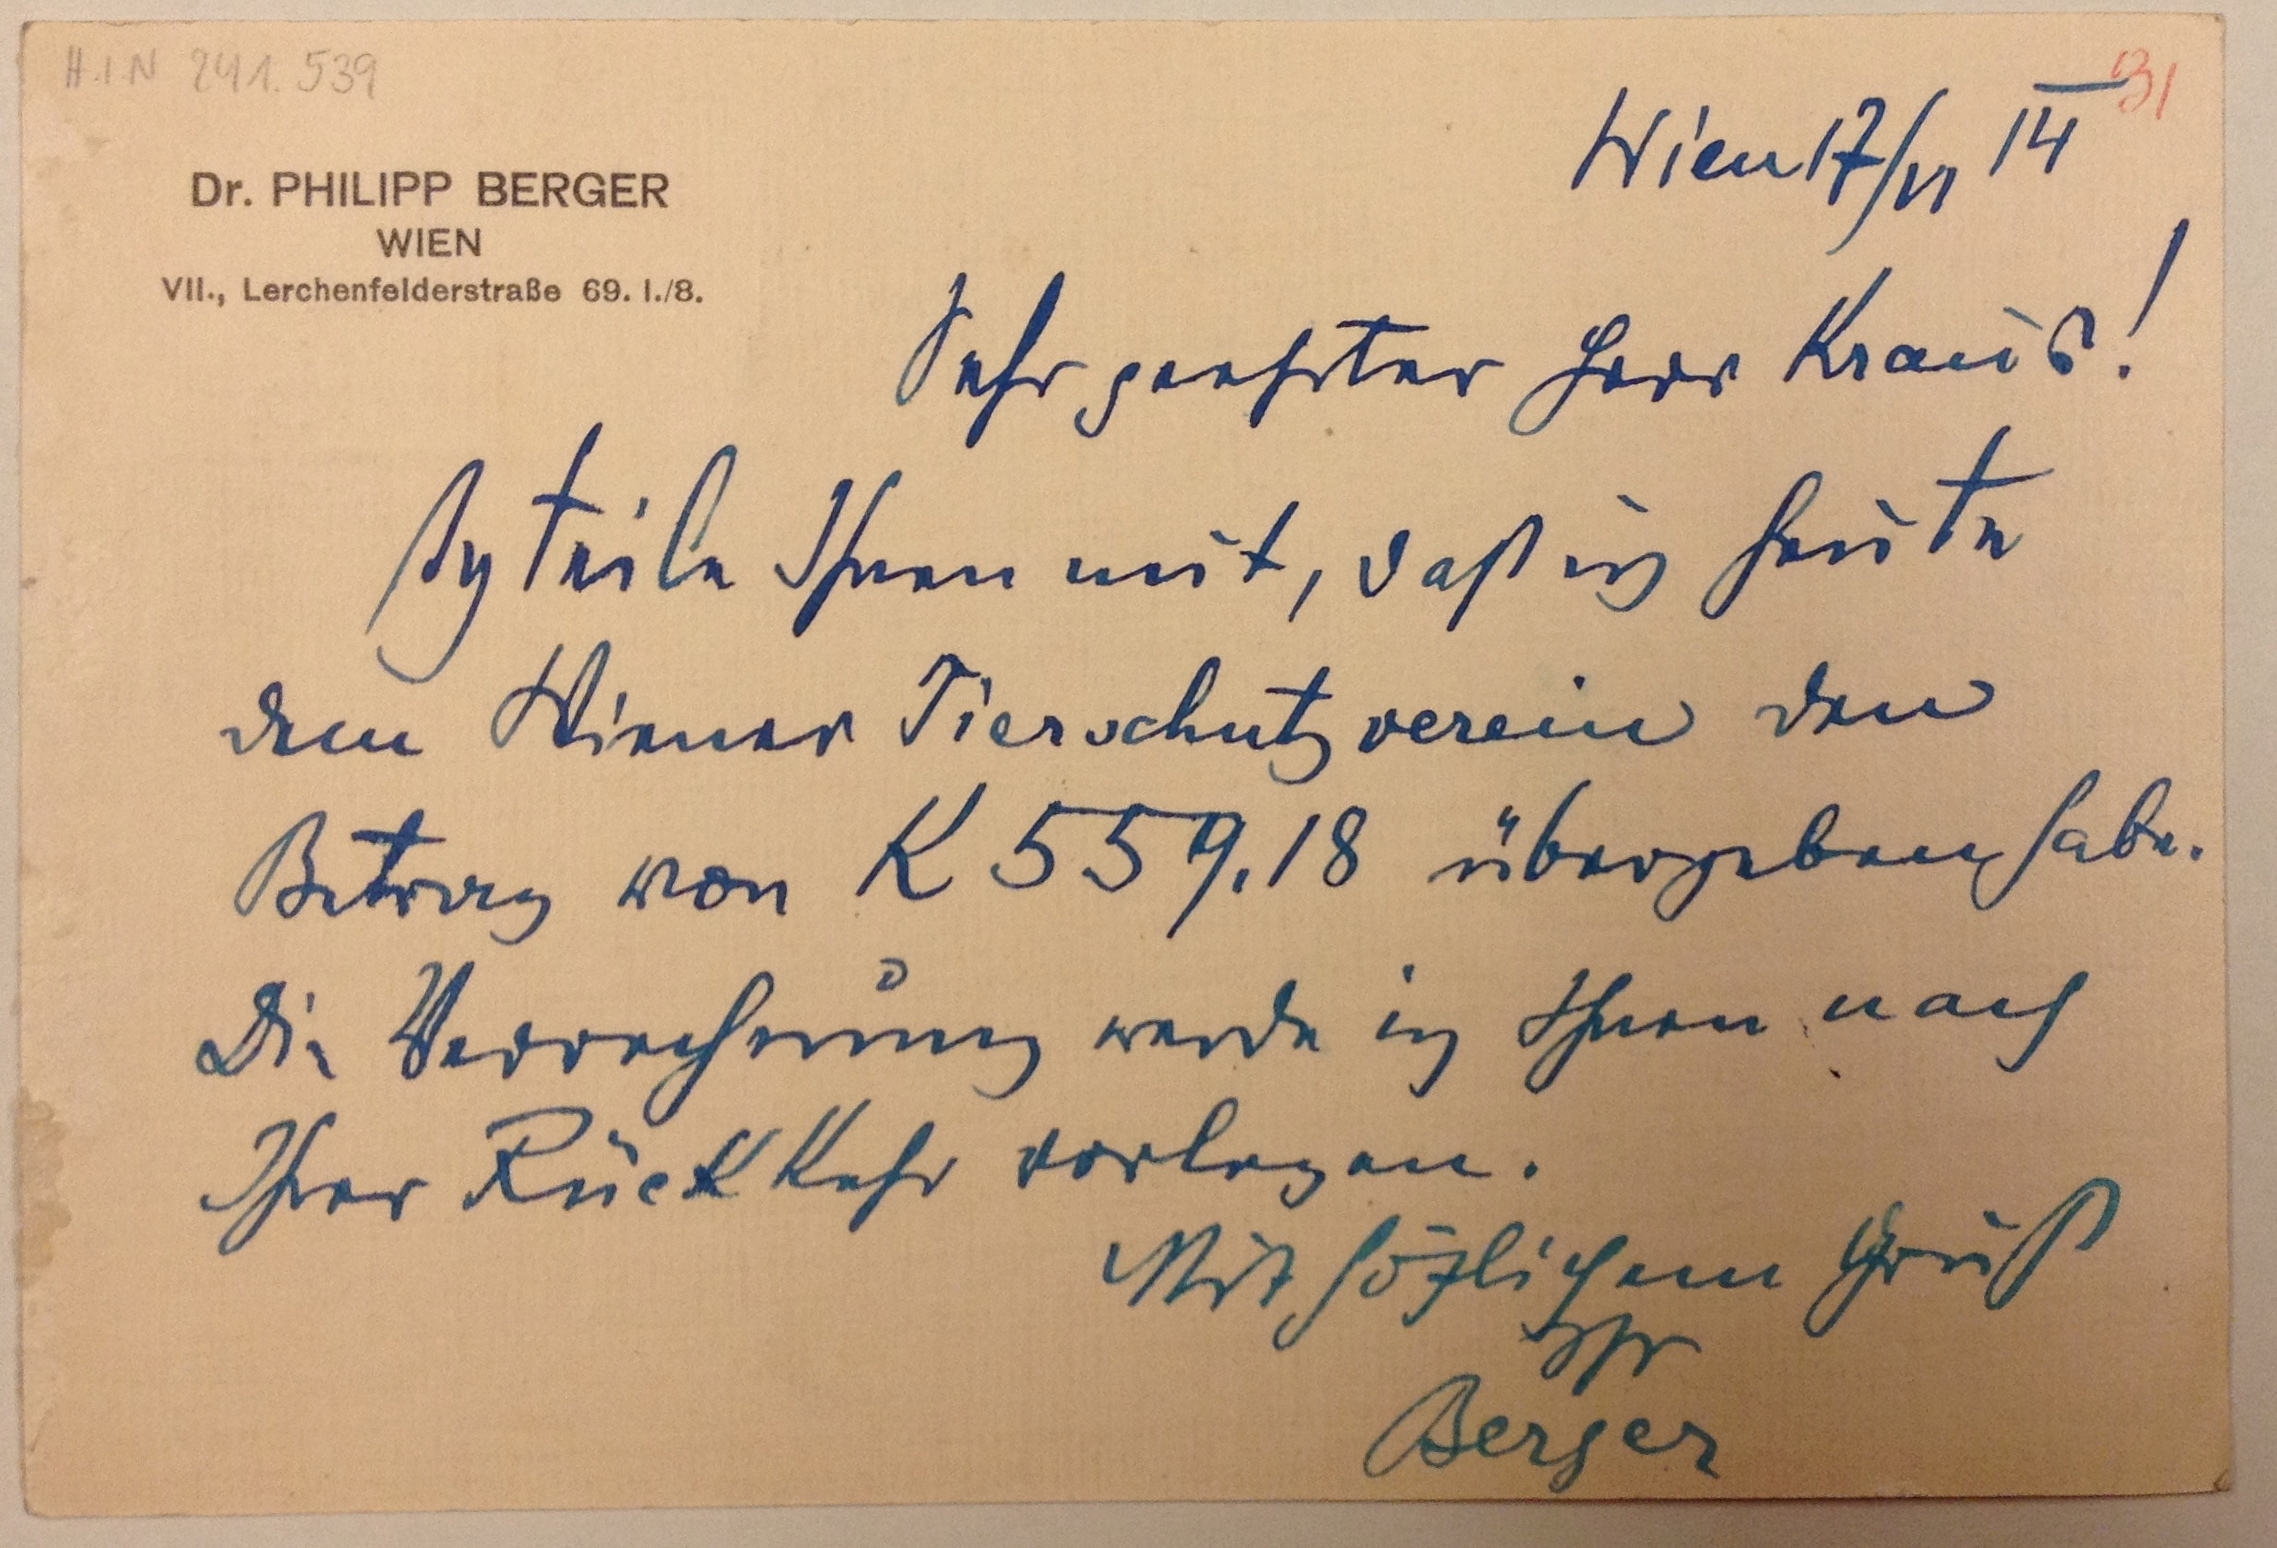 H.I.N 241.539
31
Dr. PHILIPP BERGER
WIEN
VII., Lerchenfelderstraße 69. I./8.
Wien 17/VI 14
Sehr geehrter Herr Kraus!
Ich teile Ihnen mit, daß ich heute
dem Wiener Tierschutzverein den
Betrag von K 559.18 übergeben habe.
Die Verrechnung werde ich Ihnen nach
Ihrer Rückkehr vorlegen.
Mit höflichem Gruß
Ihr
Berger